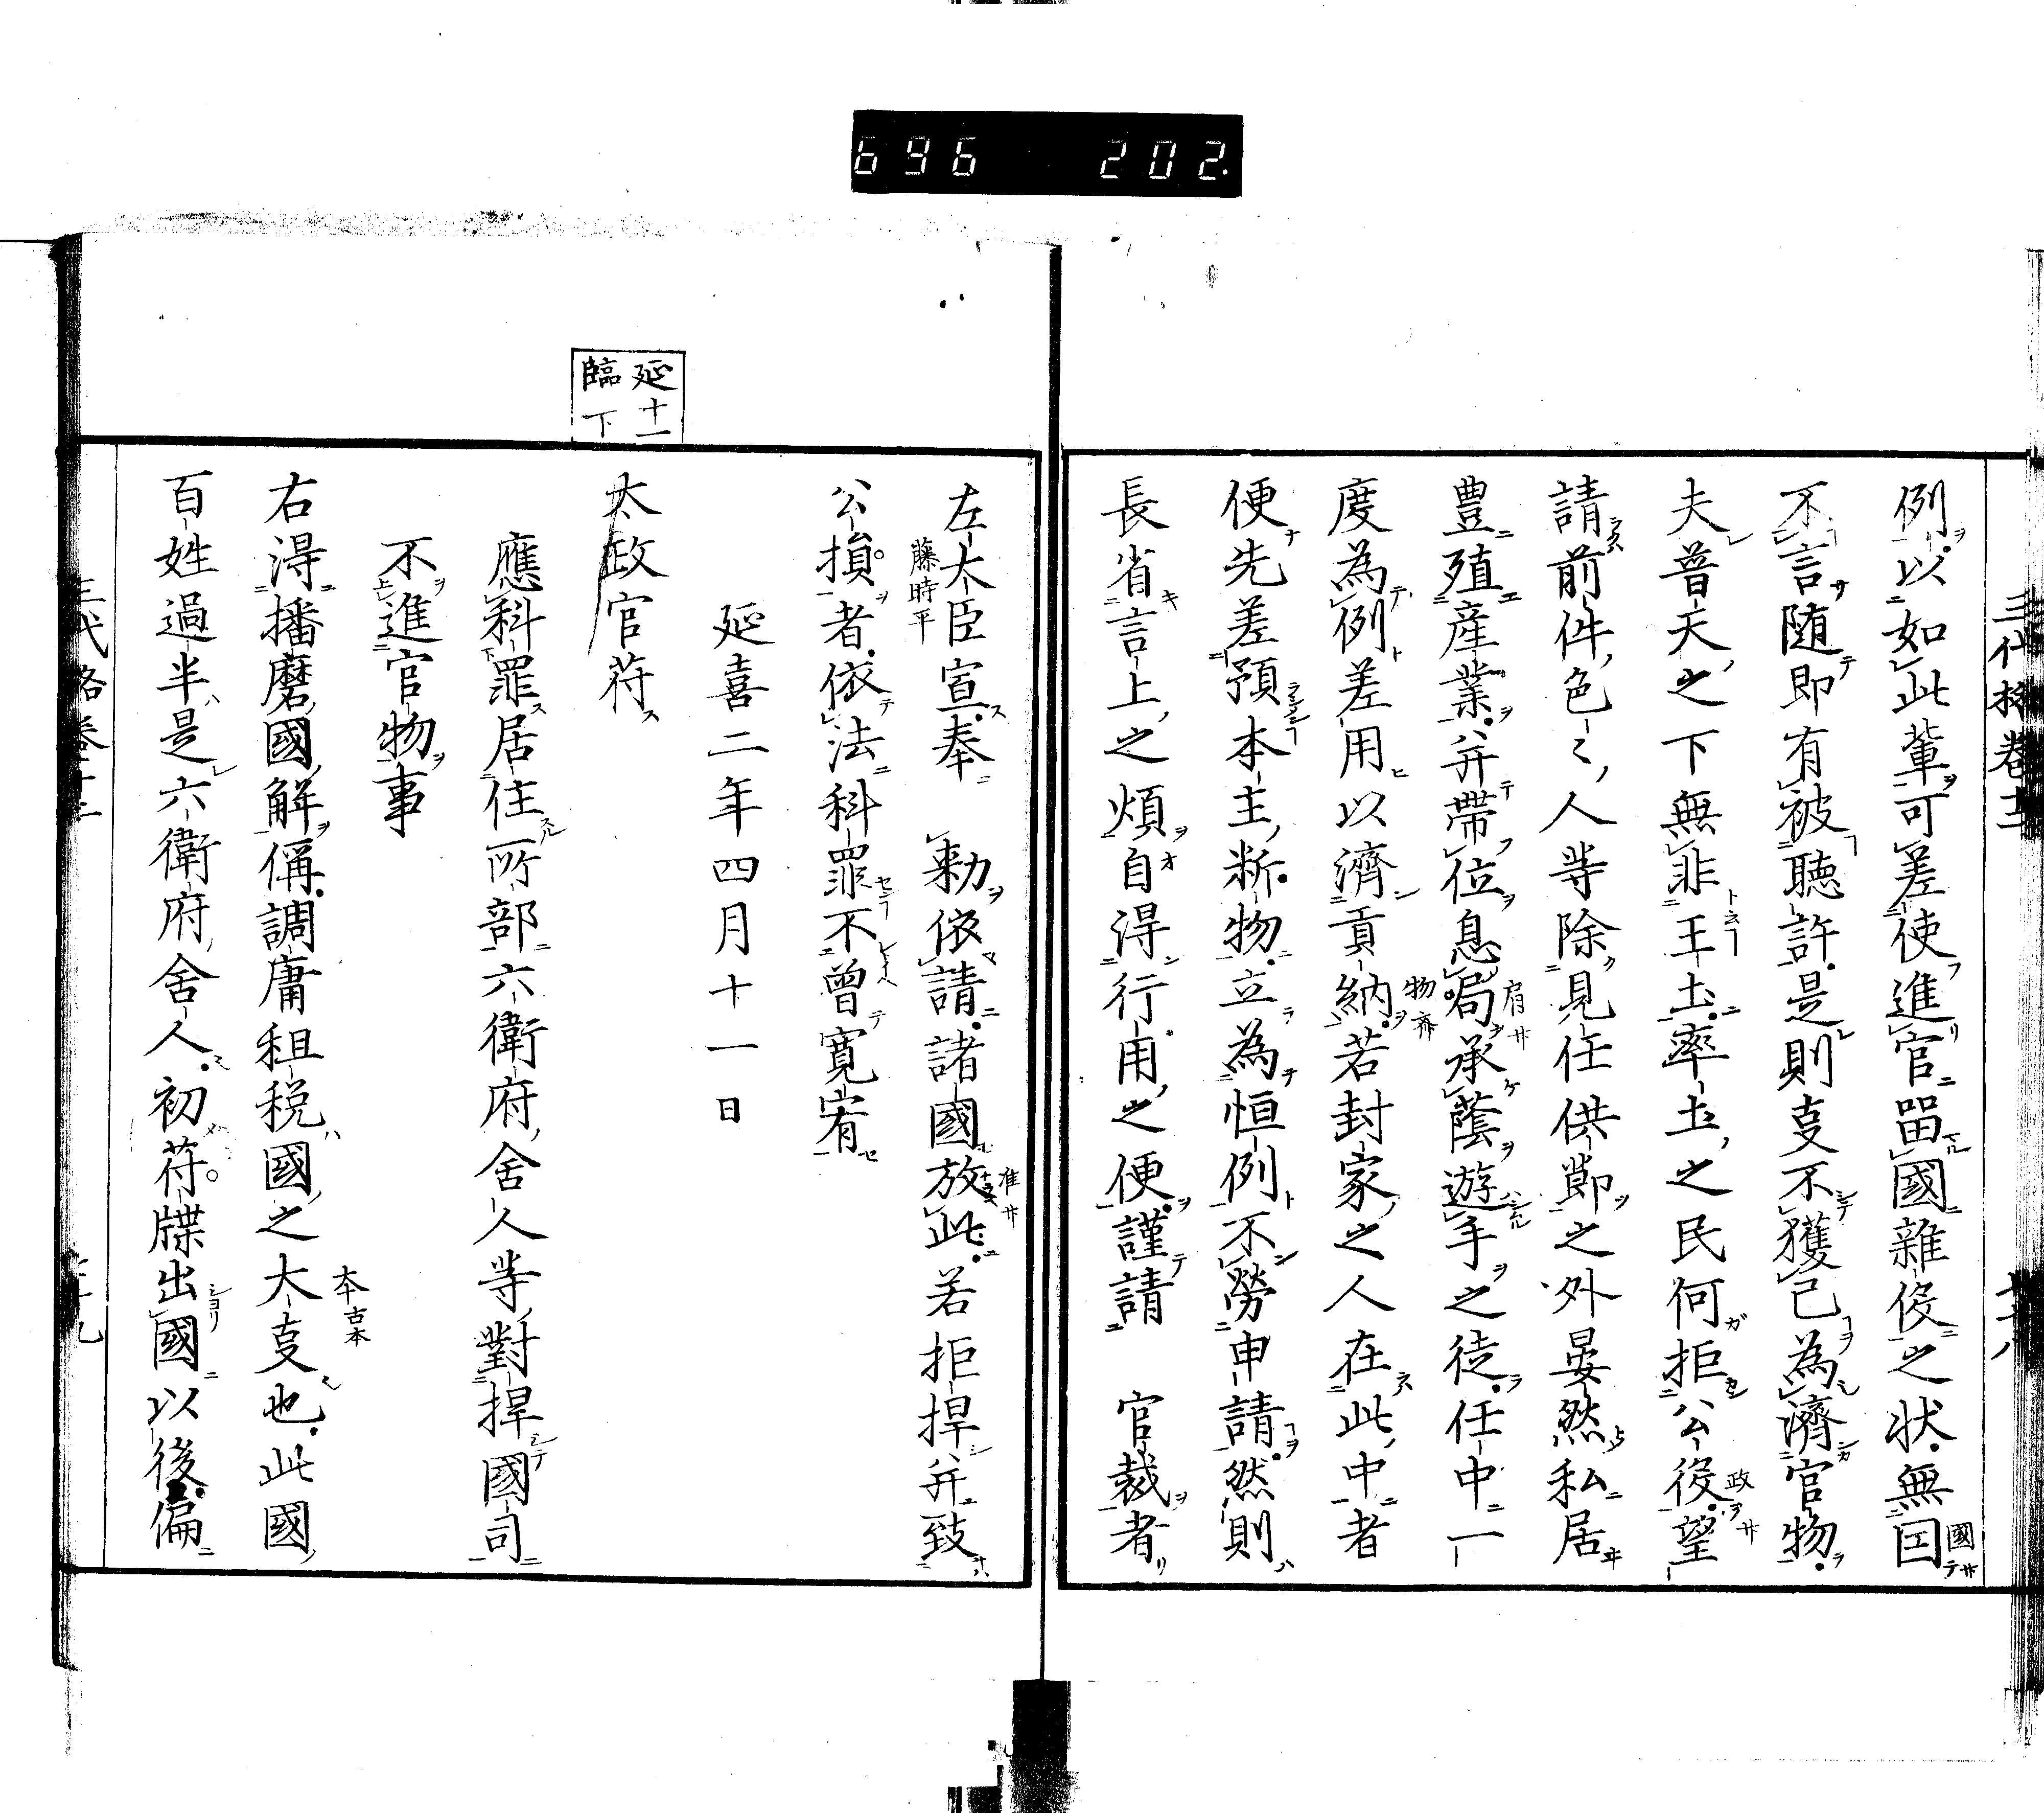 696 202.
三代格卷二十
例以如此輩可差使進官留國雜役之状無国
不言随即有被聴許是則吏不獲已為濟官物
夫普天之下無非王土率土之民何拒公役望
請前件色〻人等除見任供節之外晏然私居
豊殖産業并帶位息局承蔭遊手之徒任中一
度為例差用以濟貢納若封家之人在此中者
便先差預本主断物立為恒例不勞申請然則
長省言上之煩自得行用之便謹請 官裁者
左大臣宣奉 勅依請諸國放此若拒捍并致
藤時平
公損者依法科罪不曽寛宥
延喜二年四月十一日
延十一
臨下
太政官符
應科罪居住所部六衛府舍人等對捍國司
不進官物事
右得播磨國解偁調庸租税國之大吏也此國
百姓過半是六衛府舍人初符牒出國以後偏